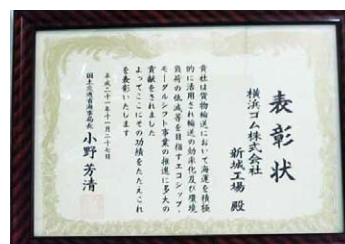 表彰状
横浜ゴム株式会社
新城工場 殿
貴社は貨物輸送において海運を積極
的に活用され輸送の効率化及び環境
負荷の低減等を目指すエコシップ・
モーダルシフト事業の推進に多大の
貢献をされました
よってここにその功績をたたえこれ
を表彰いたします
平成二十一年十一月二十七日
国土交通省海事局長 小野芳清